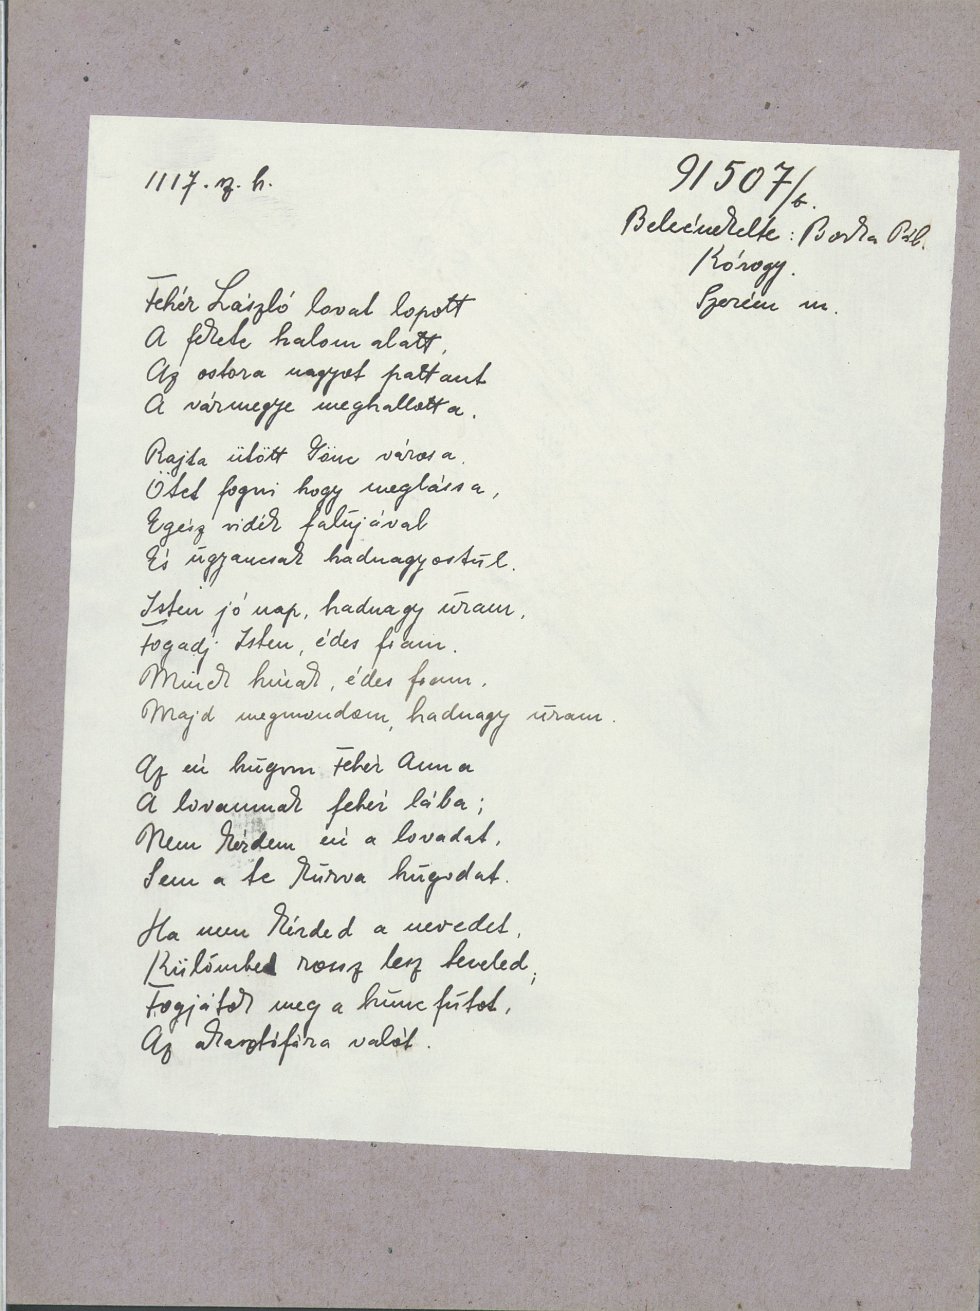 1117. sz. h.
91507/b.
Beleénekelte: Borka Pál.
Kórogy.
Szerém m.
Fehér László lovat lopott
A fekete halom alatt,
Az ostora nagyot pattant
A vármegye meghallotta.
Rajta ütött Gönc városa,
Ötet fogni hogy meglássa,
Egész vidék falújával
És úgyancsak hadnagyostúl.
Isten jó nap, hadnagy úram,
Fogadj Isten, édes fiam.
Minek hínak, édes fiam,
Majd megmondom, hadnagy úram.
Az én húgom Fehér Anna
A lovamnak fehér lába;
Nem kérdem én a lovadat,
Sem a te kúrva húgodat.
Ha nem kérded a nevedet,
Külömbel rossz lesz teveled,
Fogjátok meg a húncfútot,
Az akasztófára valót.